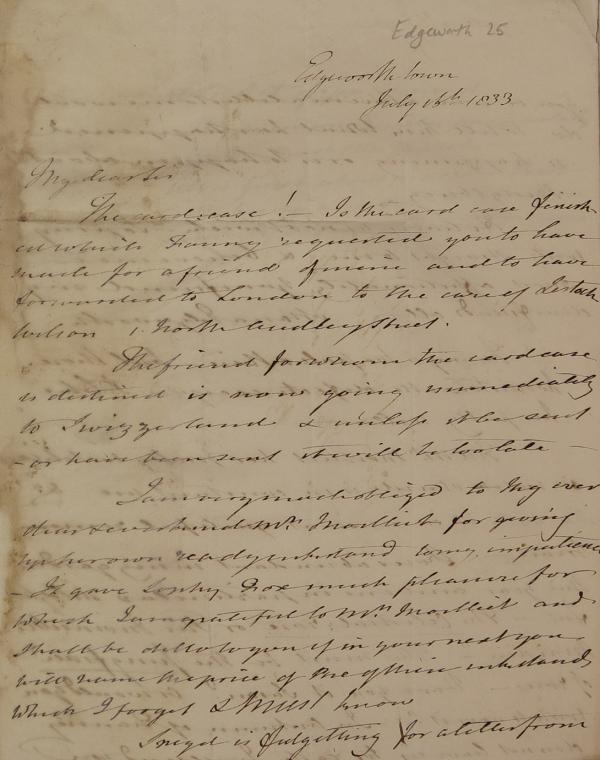 Edgeworth 25
Edgeworthtown
July 16th 1833
My dear Sir
The card-case! – Is the card case finish
ed which Fanny requested you to have
made for a friend of mine and to have
forwarded to London to the care of Lestock
Wilson 1. North Audley Street.
The friend for whom the card case
is destined is now going immediately
to Switzerland & unless it be sent
– or have been sent it will be too late –
I am very much obliged to my ever
dear & ever kind Mrs. Moilliet for giving
up her own ready inkstand to my impatience
– It gave Sophy Fox much pleasure for
which I am grateful to Mrs. Moilliet and
shall be ditto to you if in your next you
will name the price of the office inkstand
which I forget & must know
Sneyd is fidgetting for a letter from